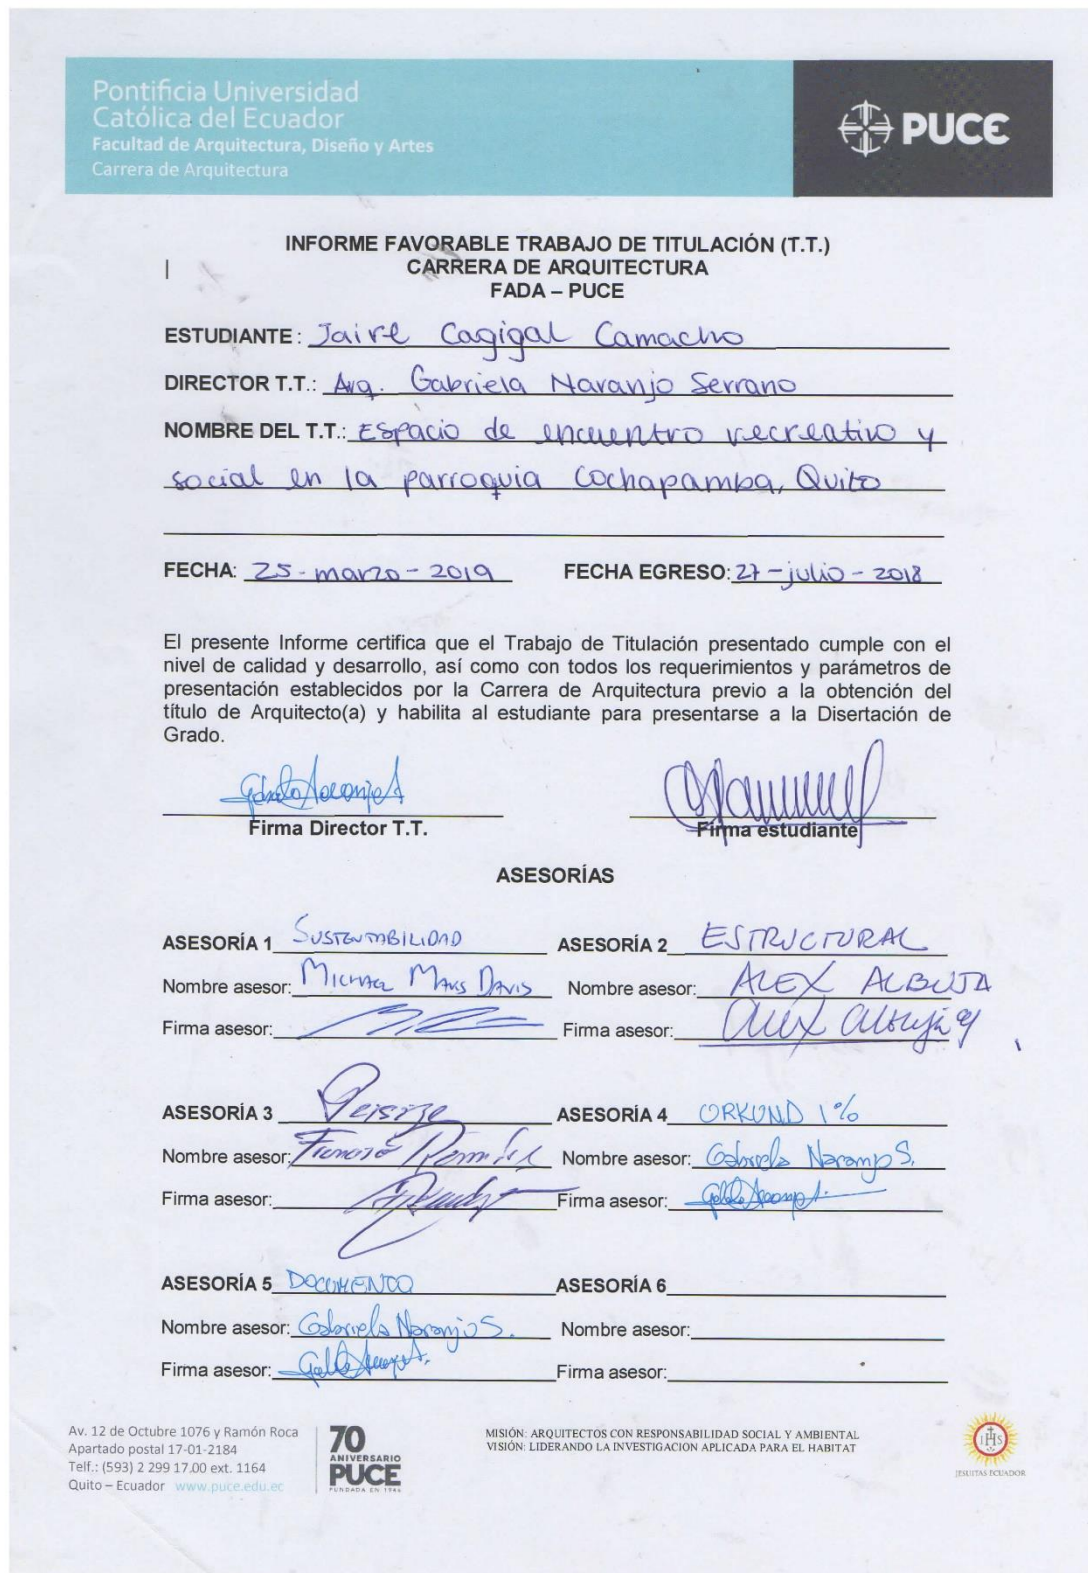 Pontificia Universidad
Católica del Ecuador
Facultad de Arquitectura, Diseño y Artes
Carrera de Arquitectura
PUCE
INFORME FAVORABLE TRABAJO DE TITULACIÓN (T.T.)
CARRERA DE ARQUITECTURA
FADA – PUCE
ESTUDIANTE: Jaire Cagigal Camacho
DIRECTOR T.T.: Arq. Gabriela Naranjo Serrano
NOMBRE DEL T.T.: Espacio de encuentro recreativo y
social en la parroquia Cochapamba, Quito
FECHA: 25-marzo-2019 FECHA EGRESO: 27-julio-2018
El presente Informe certifica que el Trabajo de Titulación presentado cumple con el
nivel de calidad y desarrollo, así como con todos los requerimientos y parámetros de
presentación establecidos por la Carrera de Arquitectura previo a la obtención del
título de Arquitecto(a) y habilita al estudiante para presentarse a la Disertación de
Grado.
Firma Director T.T. Firma estudiante
ASESORÍAS
ASESORÍA 1 SUSTENTABILIDAD ASESORÍA 2 ESTRUCTURAL
Nombre asesor: MICHAEL MAKS DAVIS Nombre asesor: ALEX ALBUJA
Firma asesor: Firma asesor: Alex Albuja
ASESORÍA 3 ASESORÍA 4 ORKUND 1%
Nombre asesor: Nombre asesor: Gabriela Naranjo S.
Firma asesor: Firma asesor:
ASESORÍA 5 DOCUMENTO ASESORÍA 6
Nombre asesor: Gabriela Naranjo S. Nombre asesor:
Firma asesor: Firma asesor:
Av. 12 de Octubre 1076 y Ramón Roca
Apartado postal 17-01-2184
Telf.: (593) 2 299 17.00 ext. 1164
Quito – Ecuador www.puce.edu.ec
70
ANIVERSARIO
PUCE
FUNDADA EN 1946
MISIÓN: ARQUITECTOS CON RESPONSABILIDAD SOCIAL Y AMBIENTAL
VISIÓN: LIDERANDO LA INVESTIGACION APLICADA PARA EL HABITAT
IHS
JESUITAS ECUADOR